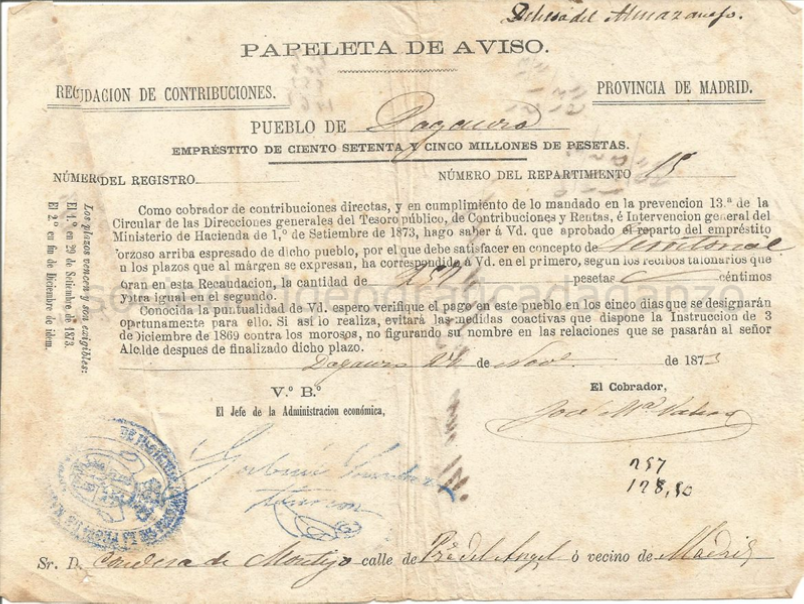 Dehesa del Almazanejo.
PAPELETA DE AVISO.
RECUDACION DE CONTRIBUCIONES. PROVINCIA DE MADRID.
PUEBLO DE Dagauzo
EMPRÉSTITO DE CIENTO SETENTA Y CINCO MILLONES DE PESETAS.
NÚMERO DEL REGISTRO NÚMERO DEL REPARTIMIENTO 15
Como cobrador de contribuciones directas, y en cumplimiento de lo mandado en la prevencion 13.ª de la
Circular de las Direcciones generales del Tesoro público, de Contribuciones y Rentas, é Intervencion general del
Ministerio de Hacienda de 1.º de Setiembre de 1873, hago saber á Vd. que aprobado el reparto del empréstito
forzoso arriba espresado de dicho pueblo, por el que debe satisfacer en concepto de Territorial
y los plazos que al márgen se expresan, ha correspondido á Vd. en el primero, según los recibos talonarios que
obran en esta Recaudacion, la cantidad de 257 pesetas céntimos
y otra igual en el segundo.
Conocida la puntualidad de Vd. espero verifique el pago en este pueblo en los cinco dias que se designarán
oportunamente para ello. Si así lo realiza, evitará las medidas coactivas que dispone la Instruccion de 3
de Diciembre de 1869 contra los morosos, no figurando su nombre en las relaciones que se pasarán al señor
Alcalde despues de finalizado dicho plazo.
Dagauzo 24 de Nove. de 1873
Los plazos vencen y son exigibles:
El 1.º en 29 de Setiembre de 1873.
El 2.º en fin de Diciembre de idem.
V.º B.º
El Jefe de la Administracion económica,
El Cobrador,
José Mª
257
128,50
Sr. D. Condesa de Montijo calle de Pza del Angel ó vecino de Madrid